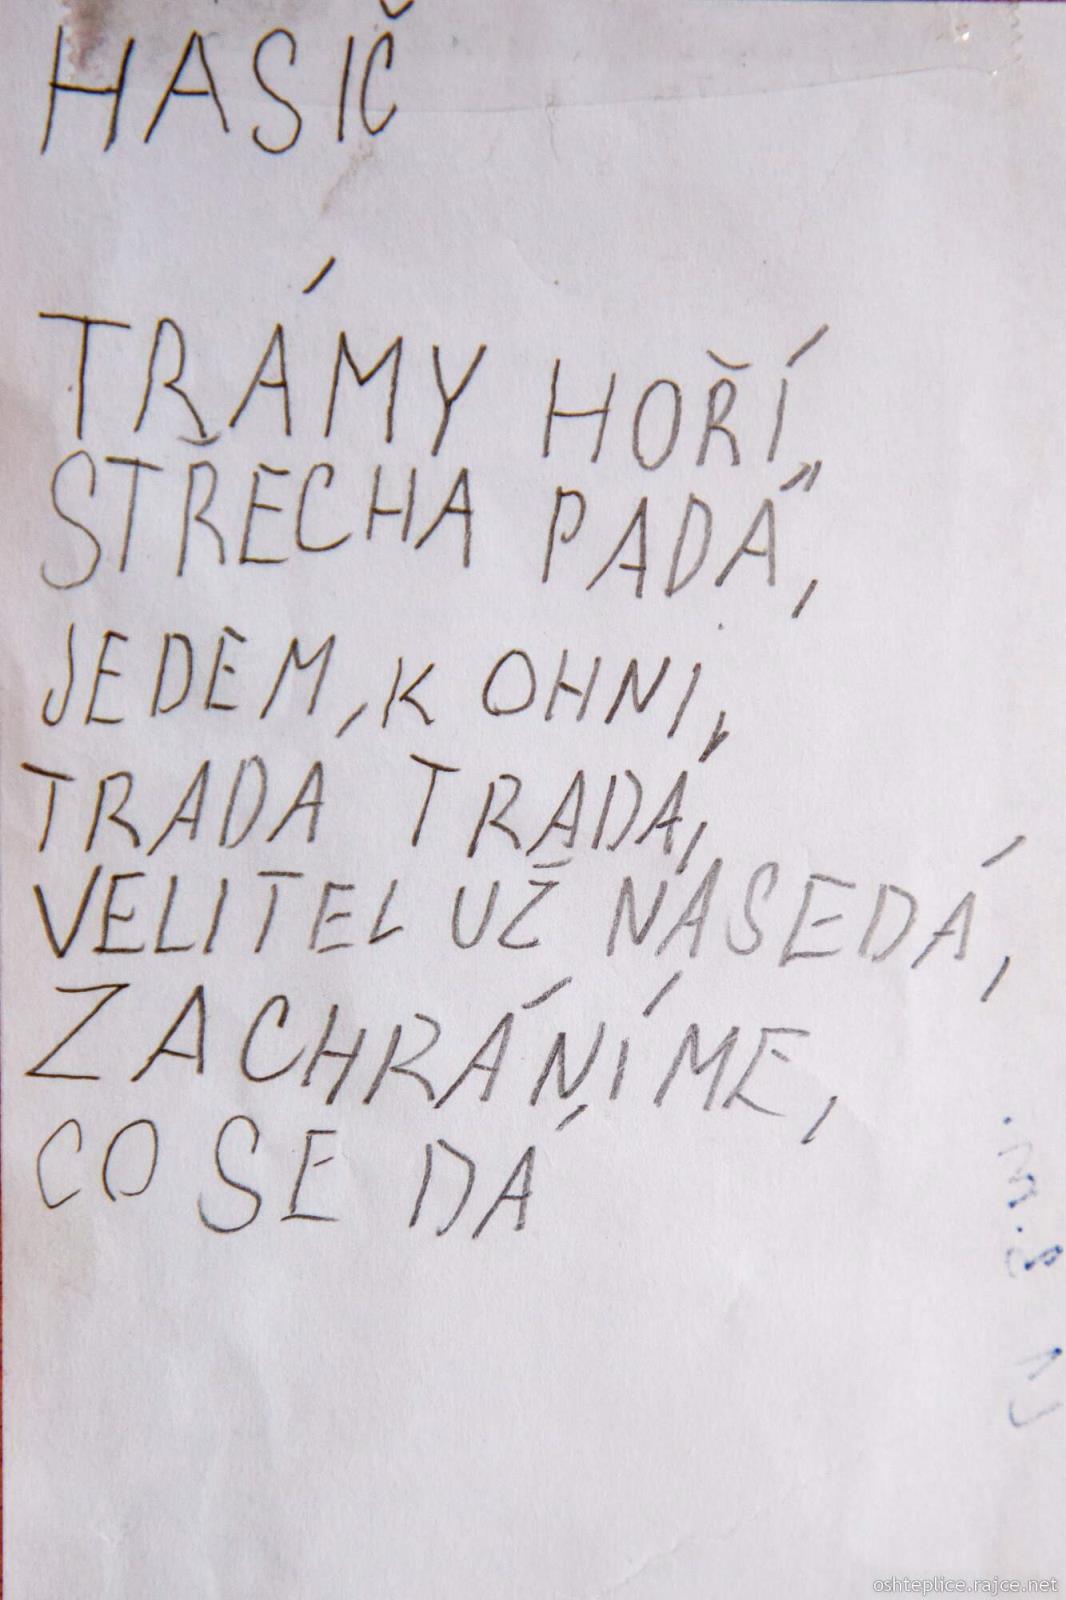 HASIČ
TRÁMY HOŘÍ,
STŘECHA PADÁ,
JEDEM, K OHNI,
TRADA TRADÁ,
VELITEL UŽ NASEDÁ,
ZACHRÁNÍME,
CO SE DÁ
oshteplice.rajce.net